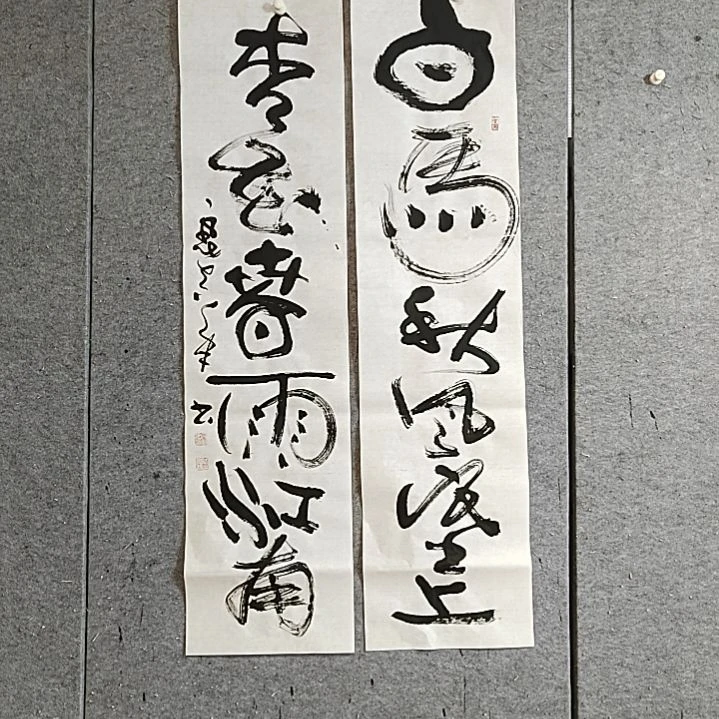 白马秋风塞上
杏花春雨江南